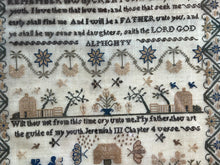 youth. I love them that love me, and those that seek me
early shall find me And I will be a FATHER unto you, and
ye shall be my sons and daughters, saith the LORD GOD
ALMIGHTY
Wilt thou not from this time cry unto me, My father, thou art
the guide of my youth. Jeremiah III Chapter 4 verse.